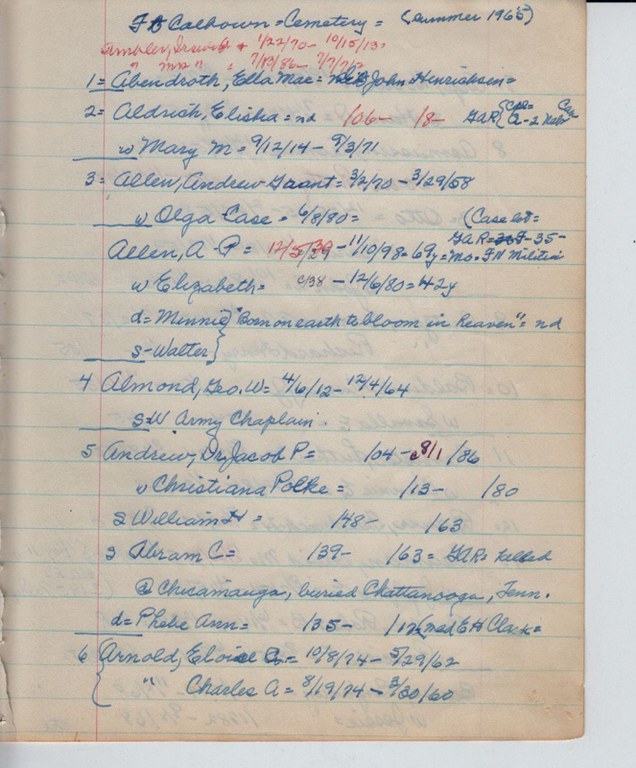 Ft Calhoun = Cemetery = (summer 1965)
1/22/70 - 10/15/13
" " = 7/13/86 - 7/7/
1 = Abendroth, Ella Mae = John Henricksen =
2 = Aldrich, Elisha = nd /06- /8- GAR { Co A-2 Nebr
w Mary M = 9/12/14 - 9/3/71
3 = Allen, Andrew Grant = 3/2/70 - 3/29/58
w Olga Case = 6/8/80 = (Case lot =
Allen, A P = 12/5/29 - 11/10/98 = 69y = GAR = -35-
Mo. Militia
w Elizabeth = c/38 - 12/6/80 = 42y
d = Minnie } "Born on earth to bloom in Heaven" = nd
s - Walter }
4 Almond, Geo. W = 4/6/12 - 12/4/64
Army Chaplain
5 Andrew, Dr. Jacob P = /04 - 8/1 /86
w Christiana Polke = /13 - /80
s William H = /48 - /63
s Abram C = /39 - /63 = GAR = killed
@ Chicamauga, buried Chattanooga, Tenn.
d = Phebe Ann = /35 - /12 (md E H Clark =
6 { Arnold, Eloise = 10/8/74 - 5/29/62
" Charles A = 8/19/74 - 3/30/60